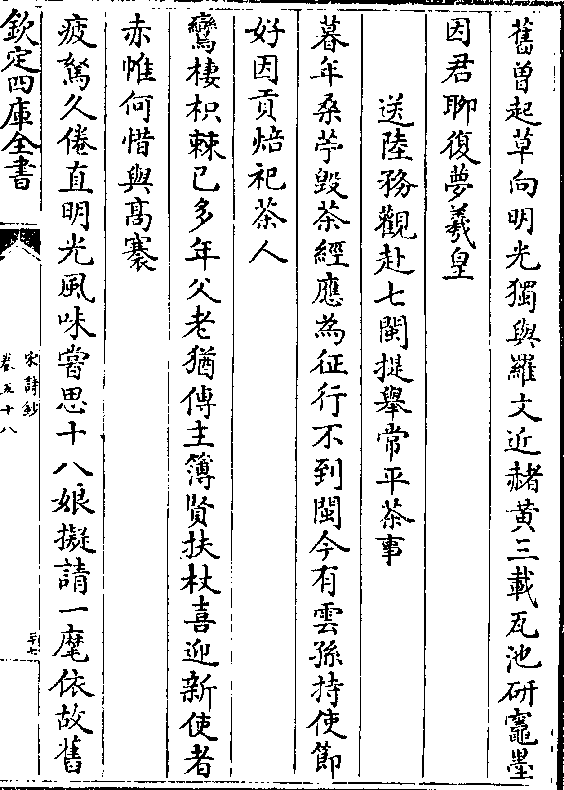 舊曽起草向明光獨與羅文近赭黄三載瓦池研竈墨
因君聊復夢羲皇
送陸務觀赴七閩提舉常平茶事
暮年桑苧毀茶經應為征行不到閩今有雲孫持使節
好因貢焙祀茶人
鸞棲枳棘已多年父老猶傳主簿賢扶杖喜迎新使者
赤帷何惜與髙褰
疲駑久倦直明光風味嘗思十八娘擬請一麾依故舊
欽定四庫全書
宋詩鈔
卷五十八